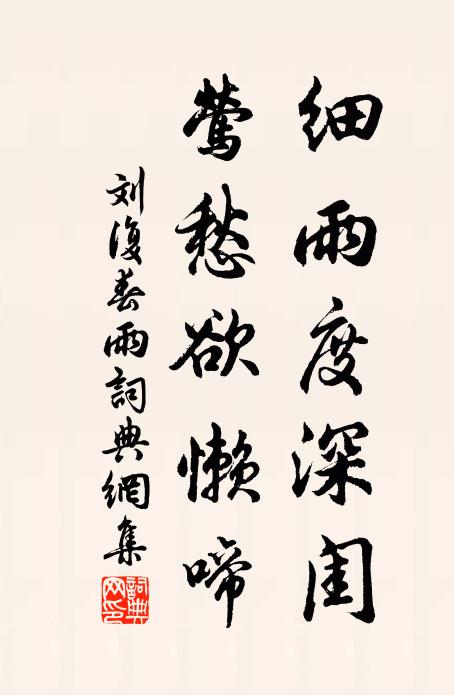 细雨度深闺
莺愁欲懒啼
刘復春雨詞典網集
詞典
网印